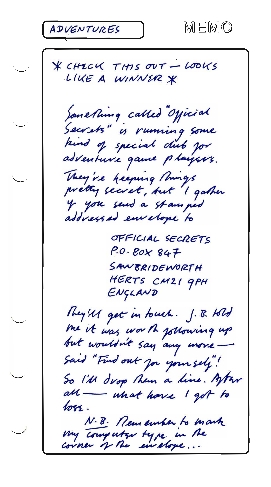 ADVENTURES
MEMO
* CHECK THIS OUT — LOOKS
LIKE A WINNER *
Something called "Official
Secrets" is running some
kind of special club for
adventure game players.
They're keeping things
pretty secret, but I gather
if you send a stamped
addressed envelope to
OFFICIAL SECRETS
P.O. BOX 847
SAWBRIDEWORTH
HERTS CM21 9PH
ENGLAND
They'll get in touch. J.B. told
me it was worth following up
but wouldn't say any more —
said "Find out for yourself"!
So I'll drop them a line. After
all — what have I got to
lose.
N.B. Remember to mark
my computer type in the
corner of the envelope...